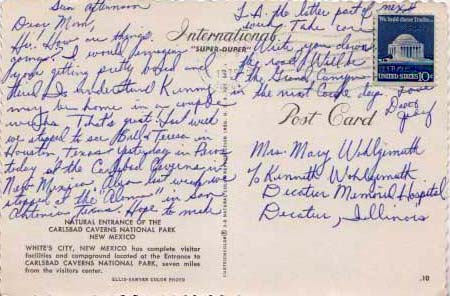 Sun afternoon
Dear Mom,
Hi. How are things
going? I would imagine
your getting pretty bored and
tired. I understand Kenny
may be home in a couple
weeks. That's great. Last week
we stopped to see Bill & Teresa in
Houston Texas. Yesterday in
today at the Carlsbad Caverns in
New Mexico. Also last week we
stopped at the "Alamo" in San
Antonio Texas. Hope to make
L.A. the latter part of next
week. Take care
Write you down
the road. Will be
at the Grand Canyon
in the next couple days. Love
Dave
International
"SUPER-DUPER"
Post Card
We hold these Truths...
UNITED STATES 10c
Mrs. Mary Wohlgemuth
% Kenneth Wohlgemuth
Decatur Memorial Hospital
Decatur, Illinois
NATURAL ENTRANCE OF THE
CARLSBAD CAVERNS NATIONAL PARK
NEW MEXICO
WHITE'S CITY, NEW MEXICO has complete visitor
facilities and campground located at the Entrance to
CARLSBAD CAVERNS NATIONAL PARK, seven miles
from the visitors center.
ELLIS-SAWYER COLOR PHOTO
.10